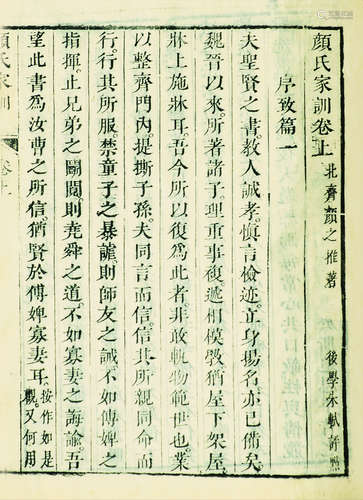 顏氏家訓卷上
北齊顏之推著
後學朱軾評點
序致篇一
夫聖賢之書教人誠孝慎言檢迹立身揚名亦已備矣
魏晉以來所著諸子理重事複遞相模斆猶屋下架屋
牀上施牀耳吾今所以復為此者非敢軌物範世也業
以整齊門內提撕子孫夫同言而信信其所親同命而
行行其所服禁童子之暴謔則師友之誡不如傅婢之
指揮止凡弟之鬭鬩則堯舜之道不如寡妻之誨諭吾
望此書為汝曹之所信猶賢於傅婢寡妻耳
按作如是
觀又何用
顏氏家訓
卷上